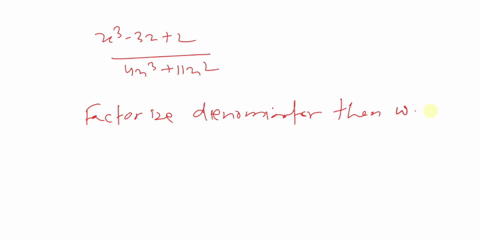 x³-3x+2
4x³+11x²
Factorize denominator then w.